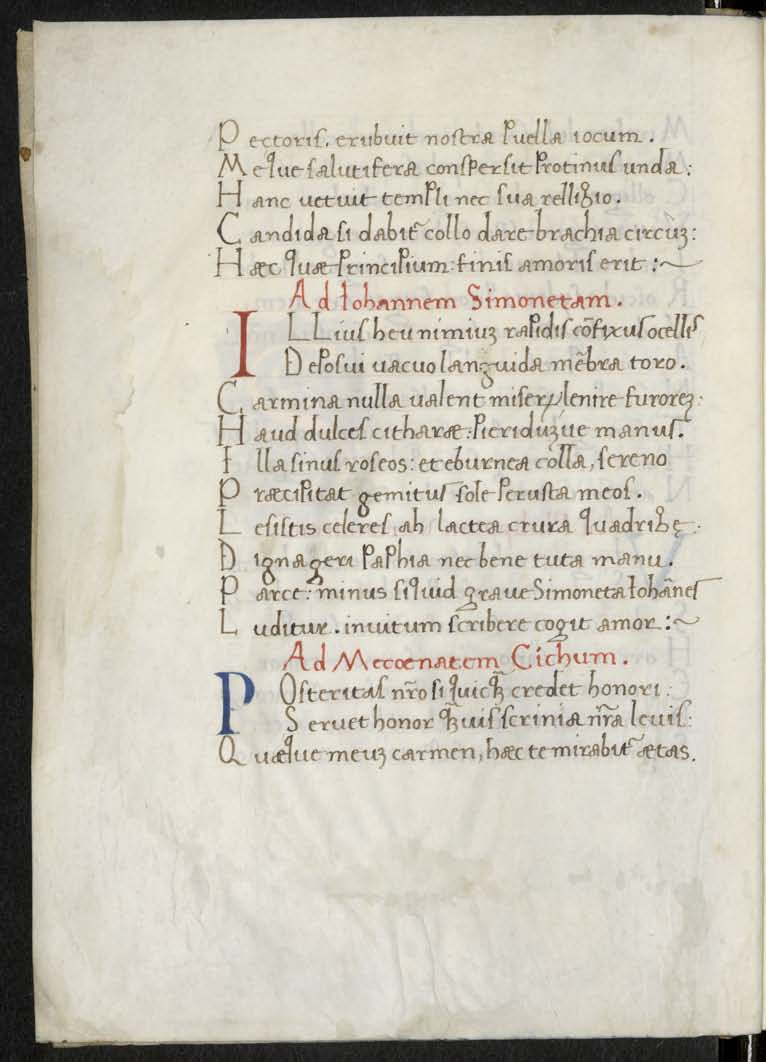 Pectoris. erubuit nostra Puella iocum.
Meque salutifera conspersit Protinus unda:
Hanc uetuit templi nec sua relligio.
Candida si dabit᷑ collo dare brachia circùꝫ:
Hæc quæ Principium: finis amoris erit :~
Ad Iohannem Simonetam.
ILLius heu nimiuꝫ rapidis cōfixus ocellis
Deposui uacuo languida mēbra toro.
Carmina nulla ualent miserꝝ lenire furoreꝫ:
Haud dulces citharæ: Pieriduꝫque manus.
Illa sinus roseos: et eburnea colla, sereno
Præcipitat gemitus sole Perusta meos.
Lesistis celeres ah lactea crura quadrigę:
Digna geri Paphia nec bene tuta manu.
Parce: minus siquid graue Simoneta Iohānes
Luditur. inuitum scribere cogit amor :~
Ad Mecoenatem Cichum.
POsteritas nr̄o si quicꝙ credet honori:
Seruet honor ꝙuis scrinia nr̄a leuis:
Quæque meuꝫ carmen, hæc te mirabit᷑ ætas.